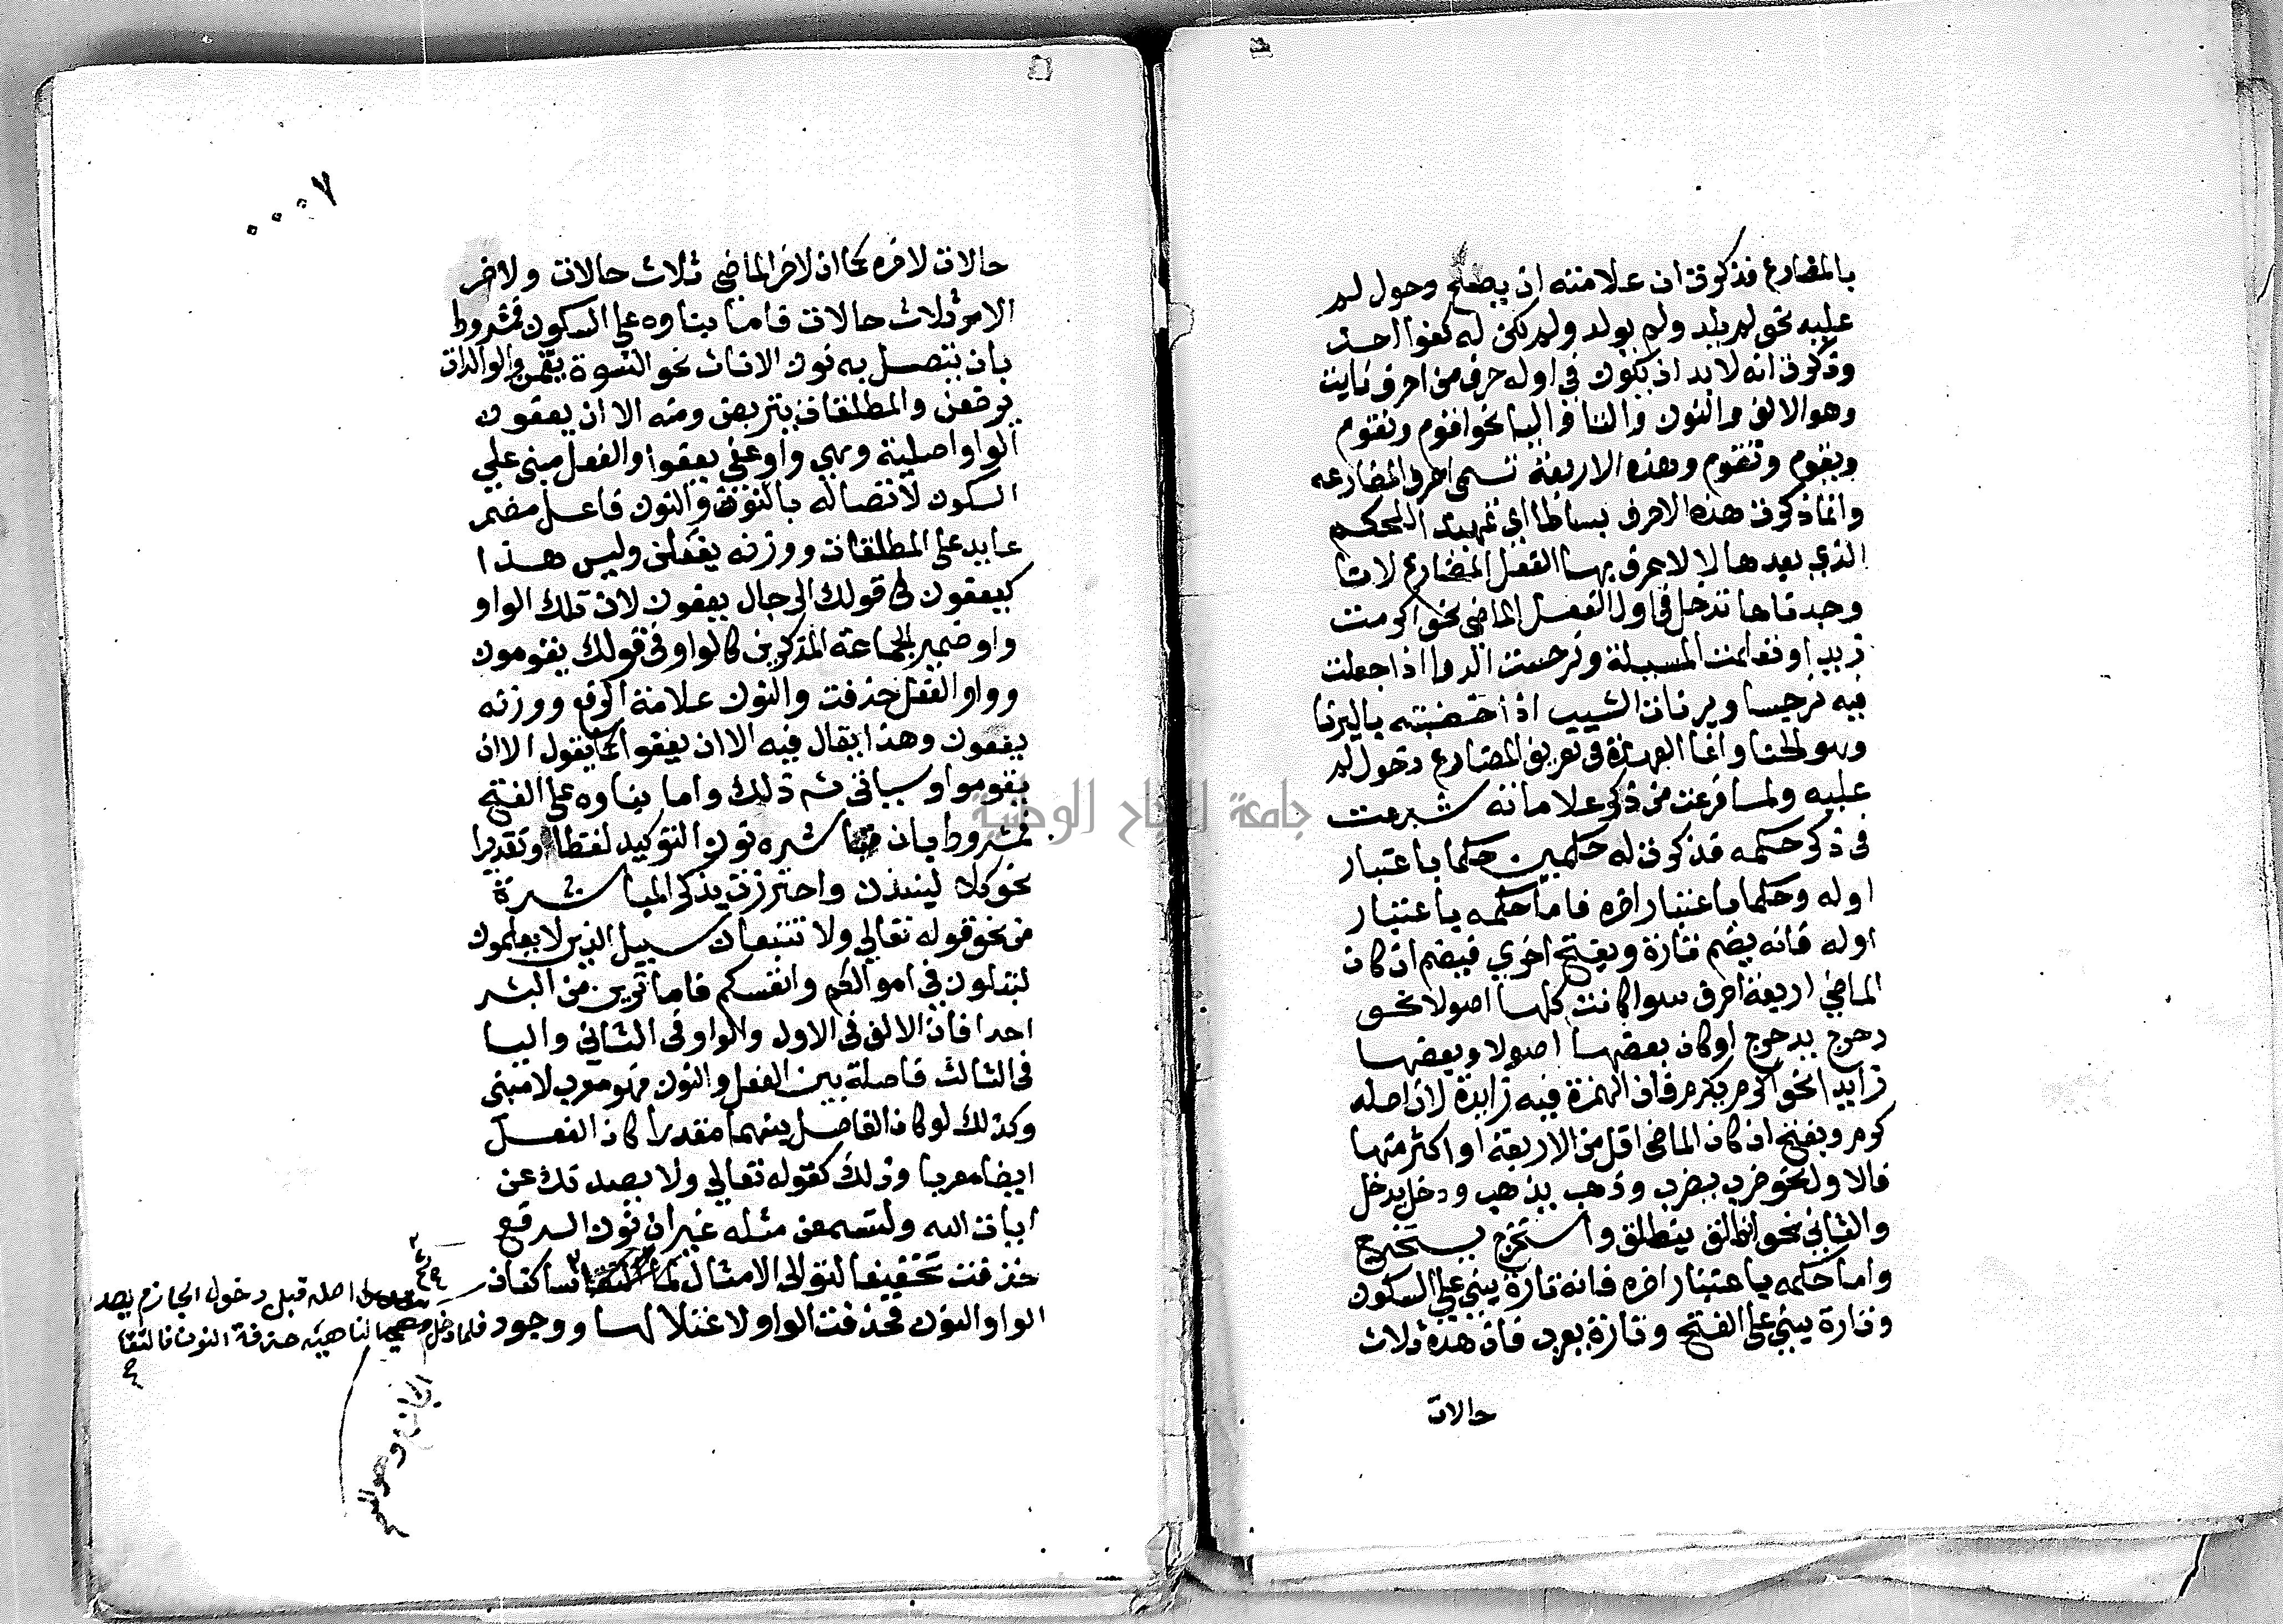 بالمضارع فذكرت ان علامته ان يصلح دخول لم
عليه نحو لم يلد ولم يولد ولم يكن له كفوا احد
وذكرت انه لا بد ان يكون في اوله حرف من احرف نايت
وهو الالف والنون والتا واليا نحو اقوم ونقوم
ويقوم وتقوم وهذه الاربعة تسمى احرف المضارعه
وانما ذكرت هذه الاحرف بساطا اي تمهيدا للحكم
الذي بعدها لا لاعرف بها الفعل المضارع لانا
وجدناها تدخل في اول الفعل الماضي نحو اكرمت
زيدا وتعلمت المسيلة ونرجست الدوا اذا جعلت
فيه نرجسا ويرنات الشيب اذا خضبته باليرنا
وهو الحنا وانما العمدة في تعريف المضارع دخول لم
عليه ولما فرغت من ذكر علاماته شرعت
في ذكر حكمه فذكرت له حكمين حكما باعتبار
اوله وحكما باعتبار اخره فاما حكمه باعتبار
اوله فانه يضم تارة ويفتح اخري فيضم ان كان
الماضي اربعة احرف سوا كانت كلها اصولا نحو
دحرج يدحرج او كان بعضها اصولا وبعضها
زايدا نحو اكرم يكرم فان الهمزة فيه زايدة لان اصله
كرم ويفتح ان كان الماضي اقل من الاربعة او اكثر منها
فالاول نحو ضرب يضرب وذهب يذهب ودخل يدخل
والثاني نحو انطلق ينطلق واستخرج يستخرج
واما حكمه باعتبار اخره فانه تارة يبني علي السكون
وتارة يبني علي الفتح وتارة يعرب فان هذه ثلاث
حالات
٠٠٠٧
حالات لاخره كما ان لاخر الماضي ثلاث حالات ولاخر
الامر ثلاث حالات فاما بناوه علي السكون فمشروط
بان يتصل به نون الاناث نحو النسوة يقمن والوالدات
يرضعن والمطلقات يتربصن ومنه الا ان يعفون
الواو اصلية وهي واو عفي يعفوا والفعل مبني علي
السكون لاتصاله بالنون والنون فاعل مضمر
عايد علي المطلقات ووزنه يفعلن وليس هذا
كيعفون في قولك الرجال يعفون لان تلك الواو
واو ضمير لجماعة المذكرين كالواو في قولك يقومون
وواو الفعل حذفت والنون علامة الرفع ووزنه
يفعون وهذا يقال فيه الا ان يعفوا كما يقول الا ان
يقوموا وسياتي شرح ذلك واما بناوه علي الفتح
فمشروط بان تباشره نون التوكيد لفظا وتقديرا
نحو كلا لينبذن واحترزت بذكر المباشرة
من نحو قوله تعالي ولا تتبعان سبيل الذين لا يعلمون
لتبلون في اموالكم وانفسكم فاما ترين من البشر
احدا فان الالف في الاول والواو في الثاني واليا
في الثالث فاصلة بين الفعل والنون فهو معرب لا مبني
وكذلك لو كان الفاصل بينهما مقدرا كان الفعل
ايضا معربا وذلك كقوله تعالي ولا يصدنك عن
ايات الله ولتسمعن مثله غير ان نون الرفع
حذفت تخفيفا لتوالي الامثال ساكنان
الواو والنون فحذفت الواو لاعتلالها ووجود
اصله قبل دخول الجازم يصد
فلما دخل لنا هيه حذفة النون فالتقا
الجازم وهو